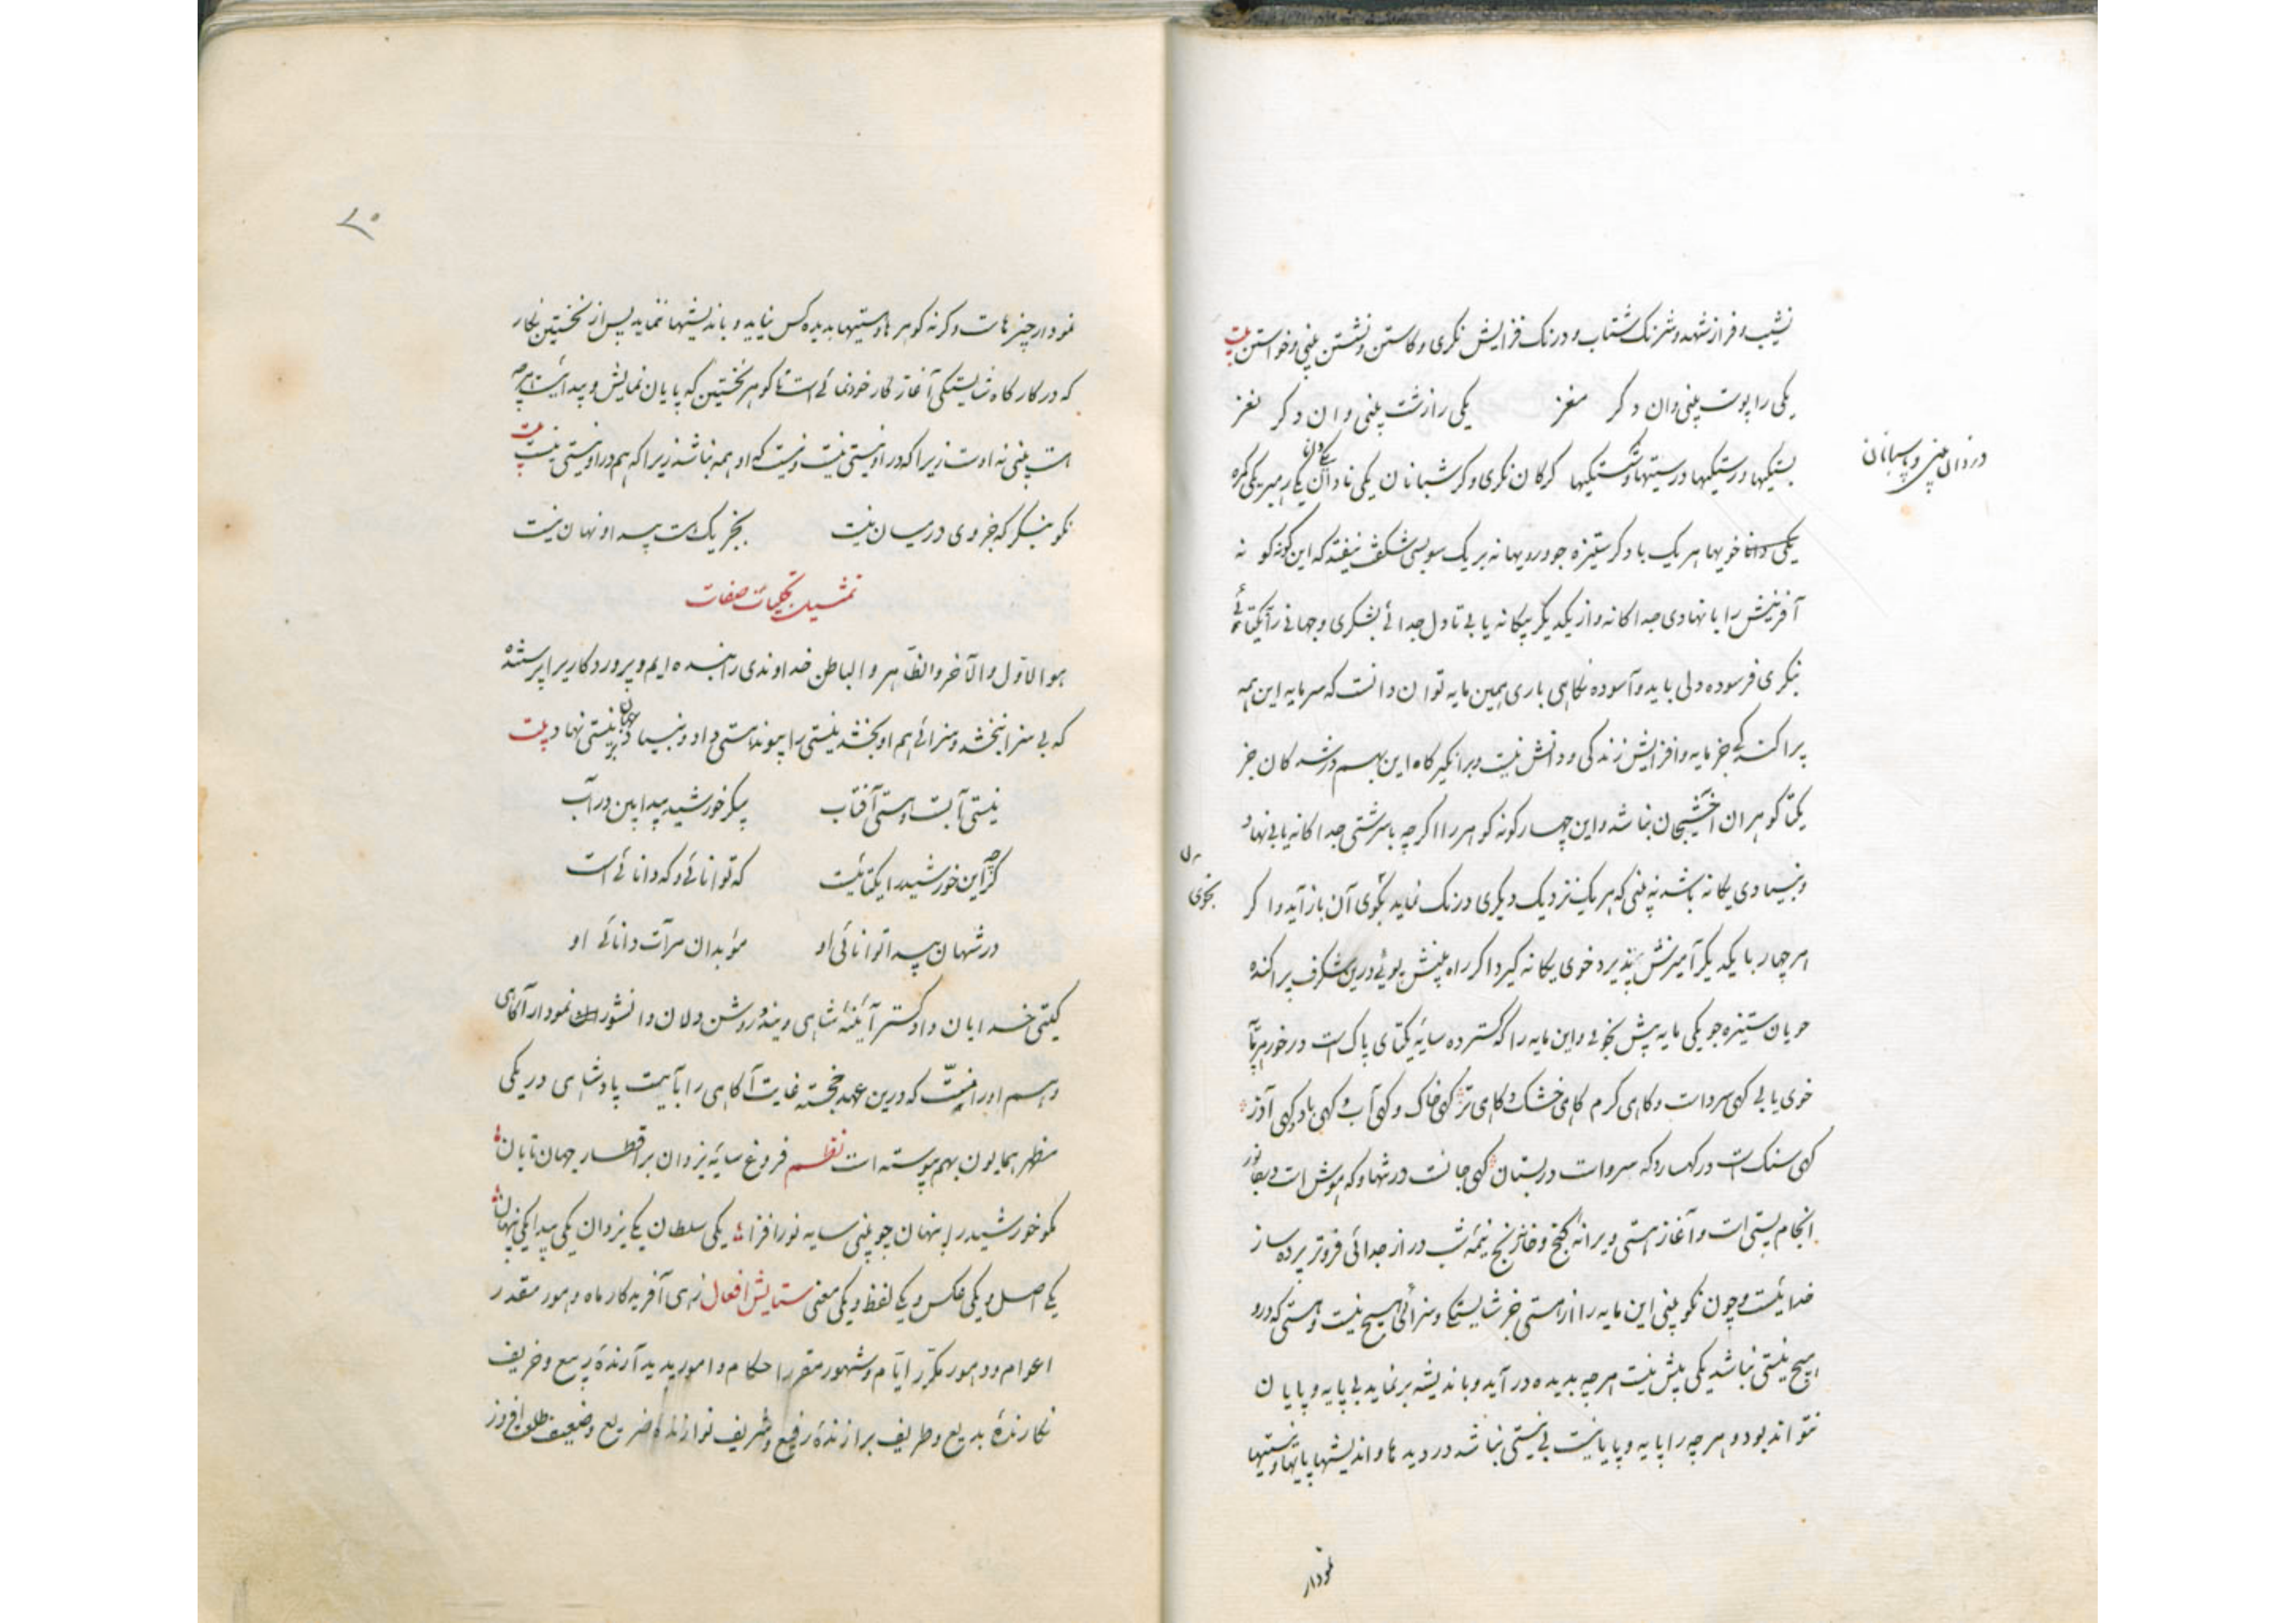 نشیب و فراز شهد و شرنک شتاب و درنک فزایش نکری و کاستن و نشستن بینی و خواستن بیت
یکی را پوست بینی وان دکر مغز یکی را زشت بینی وان دکر نغز
دزدان بینی و پاسبانان
کرکان نکری و کر شبانان یکی نادان یکی رهبر یکی کمره
خویها هر یک با دکر ستیزه جو و رویها نه بر یک سو بسی شکفت نیفتد که این کونه کونه
آفرینش را با نهادی جداکانه و از یکدیکر بیکانه یابی تا دل جدائی بشکری و جهانی را یکتائی
نیکری فرسوده دلی باید و آسوده نکاهی باری همین مایه توان دانست که سرمایه این همه
پراکندکی جز مایه و افزایش زندکی و دانش نیست و برانکیز کاه این بهم در شدکان جز
یکتا کوهران اخشیجان نباشد و این چهار کونه کوهر را اکر چه با سرشتی جداکانه یابی نهاد
و بنیادی یکانه باشد نه بینی که هر یک نزدیک دیکری درنک نماید بخوی آن باز آید و اکر
بخوی
هر چهار با یکدیکر آمیزش پذیرد خوی یکانه کیرد اکر راه بینش پوئی درین شکرف پراکنده
جویان ستیزه جو یکی مایه بیش نجوئی و این مایه را که کسترده سایه یکتای پاک است در خور هر
خوی یابی کهی سرد است و کاهی کرم کاهی خشک و کاهی تر کهی خاک و کهی آب و کهی باد و کهی آذر
کهی سنک است در کهسار و که سرو است در بستان کهی جانست در تنها و که هوش است در
انجام پستی است و آغاز هستی ویرانه کنج و خانه رنج نیمه شب دراز جدائی فروتر پرده ساز
خدائیست و چون نکو بینی این مایه را از هستی جز شایستکی و سزائی هیچ نیست و هستی که درو
هیچ نیستی نباشد یکی بیش نیست هر چه بدیده در آید و باندیشه بر نماید بی پایه و پایان
نتواند بود و هر چه را پایه و پایانیست بی نیستی نباشد در دیدها و اندیشها پایها و نیستیها
نمودار
۲۰
نمودار چیزهاست و کرنه کوهرها و هستیها بدیده کس نیاید و باندیشها ننماید پس از نخستین نکار
که در کارکاه شایستکی آغاز کار خودنمائی است تا کوهر نخستین که پایان نمایش و پیدائیست هر چه
هست بینی نه اوست زیرا که در او نیستی نیست و نیست که او همه نباشد زیرا که هم در او نیستی نیست بیت
نکو بنکر که جز وی در میان نیست بجز یک هست پیدا و نهان نیست
تمثیل تجلیات صفات
هو الاول و الآخر و الظاهر و الباطن خداوندی را بنده ایم و پروردکاریرا پرستنده
که بی سزا ببخشد و سزائی هم او بخشد نیستی را پیوند هستی داد و بنیاد جهان بر نیستی نهاد بیت
نیستی آبست و هستی آفتاب پیکر خورشید پیدا بین در آب
کرچه این خورشید را یکتائیست که توانائی و که دانائی است
در شهان پیدا توانائی او موبدان مرآت دانائی او
کیتی خدایان دادکستر آئینه شاهی ویند و روشن دلان دانشور نمودار آکاهی
و هم او را منّت که درین عهد خجسته غایت آکاهی را با آیت پادشاهی در یکی
مظهر همایون بهم پیوسته است نظم فروغ سایه یزدان بر اقطار جهان تابان
مکو خورشید را پنهان چو بینی سایه نور افزا یکی سلطان یکی یزدان یکی پیدا یکی پنهان
یکی اصل و یکی عکس و یکی لفظ و یکی معنی ستایش افعال زهی آفریدکار ماه و هور مقدر
اعوام و دهور مکرر ایام و شهور مقرر احکام و امور پدید آرنده ربیع و خریف
نکارنده بدیع و طریف برازنده رفیع و شریف نوازنده ضریع و ضعیف